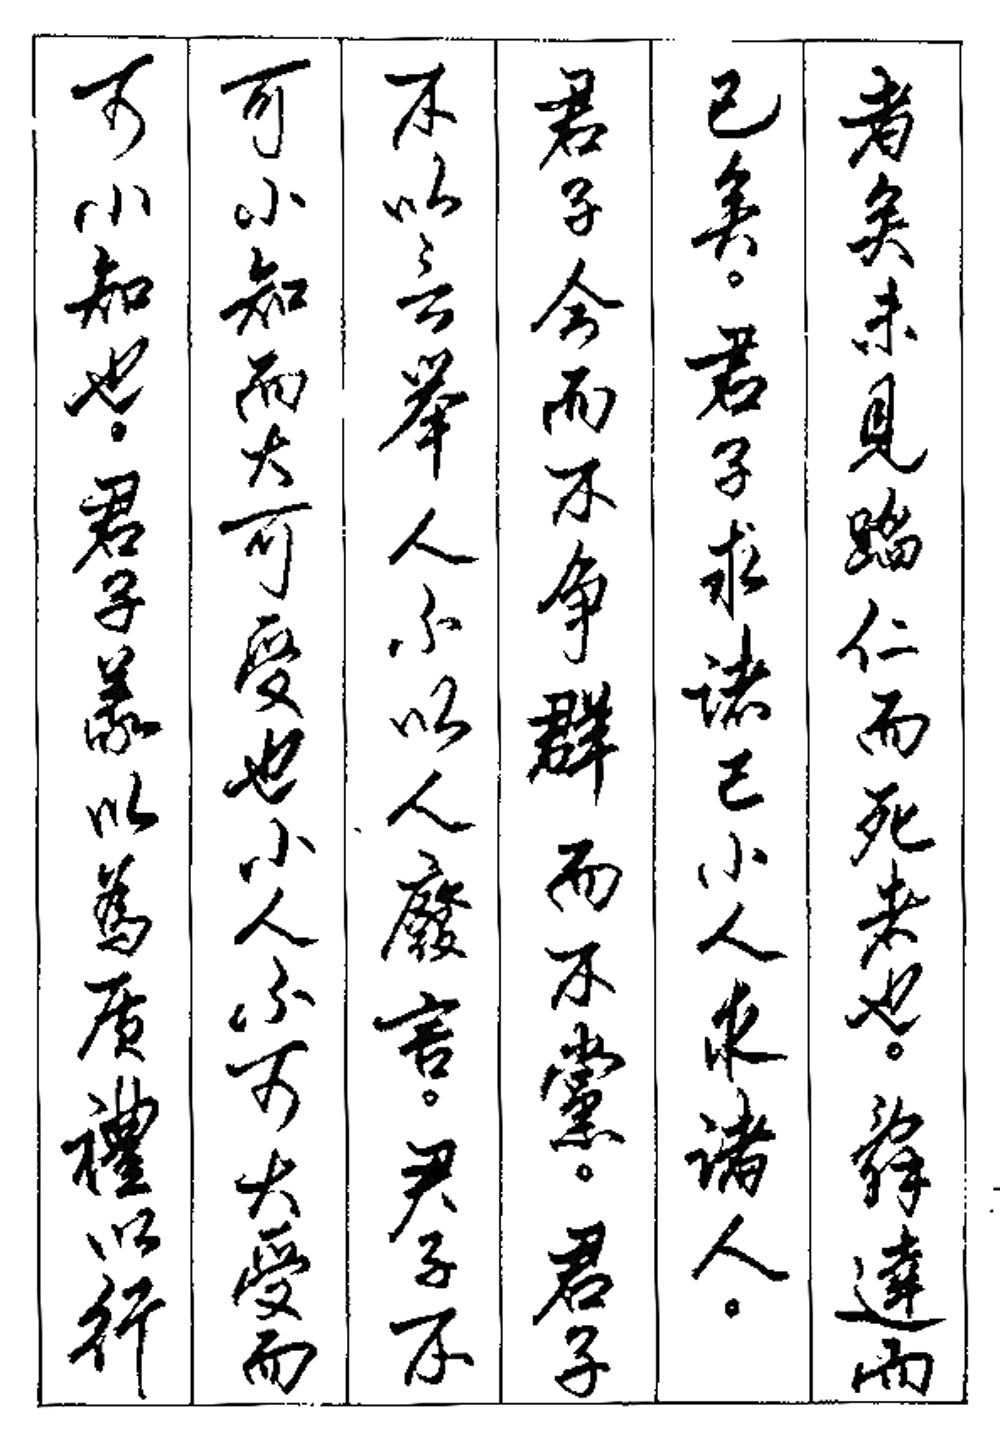 者矣未見蹈仁而死者也。辭達而
已矣。君子求諸己小人求諸人。
君子矜而不争群而不黨。君子
不以言舉人不以人廢言。君子不
可小知而大可受也小人不可大受而
可小知也。君子義以為质禮以行